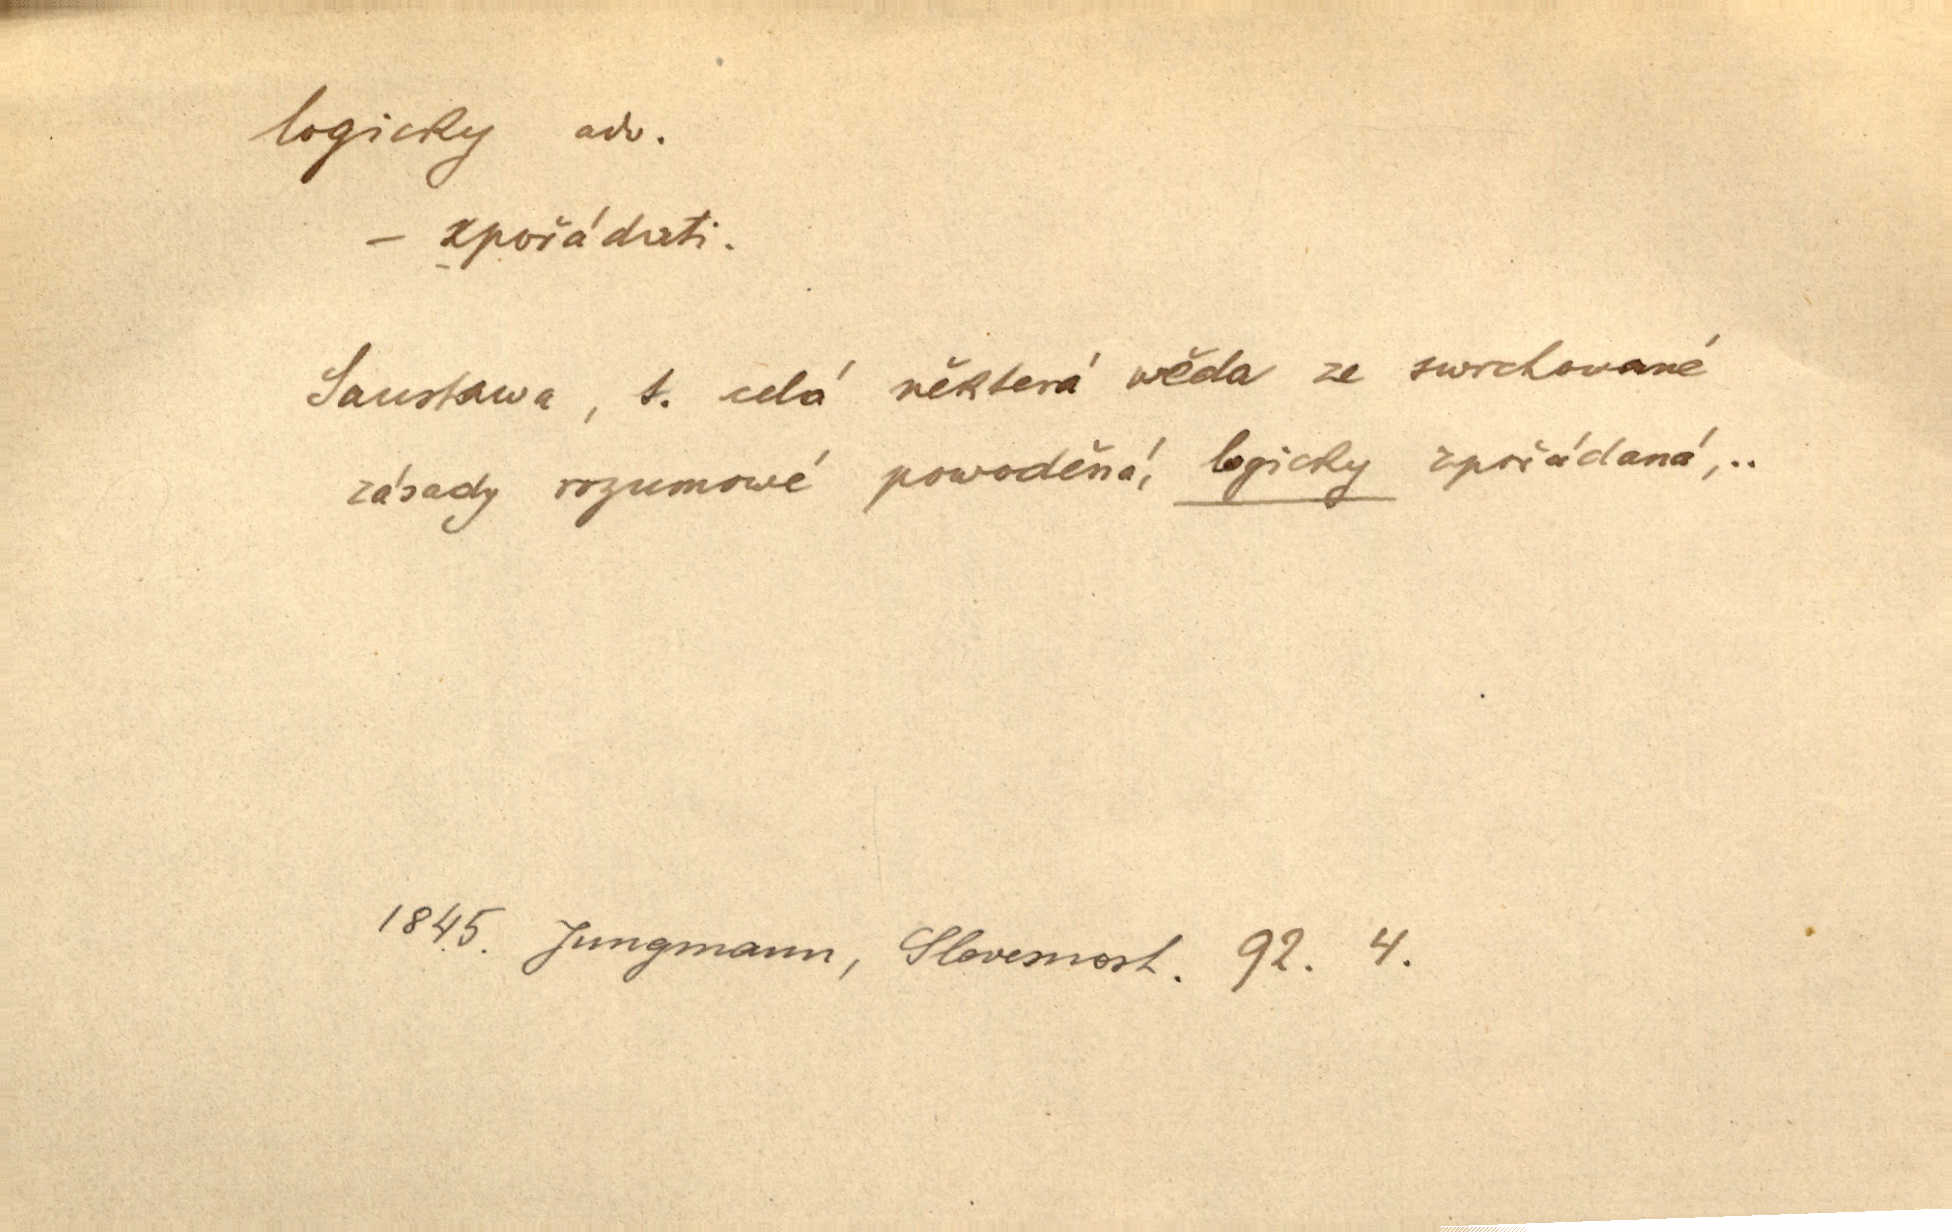 logicky adv.
– zpořádati.
Saustawa, t. celá některá wěda ze swrchované
zásady rozumowé powoděná, logicky zpořádaná,..
1845. Jungmann, Slovesnost. 92. 4.